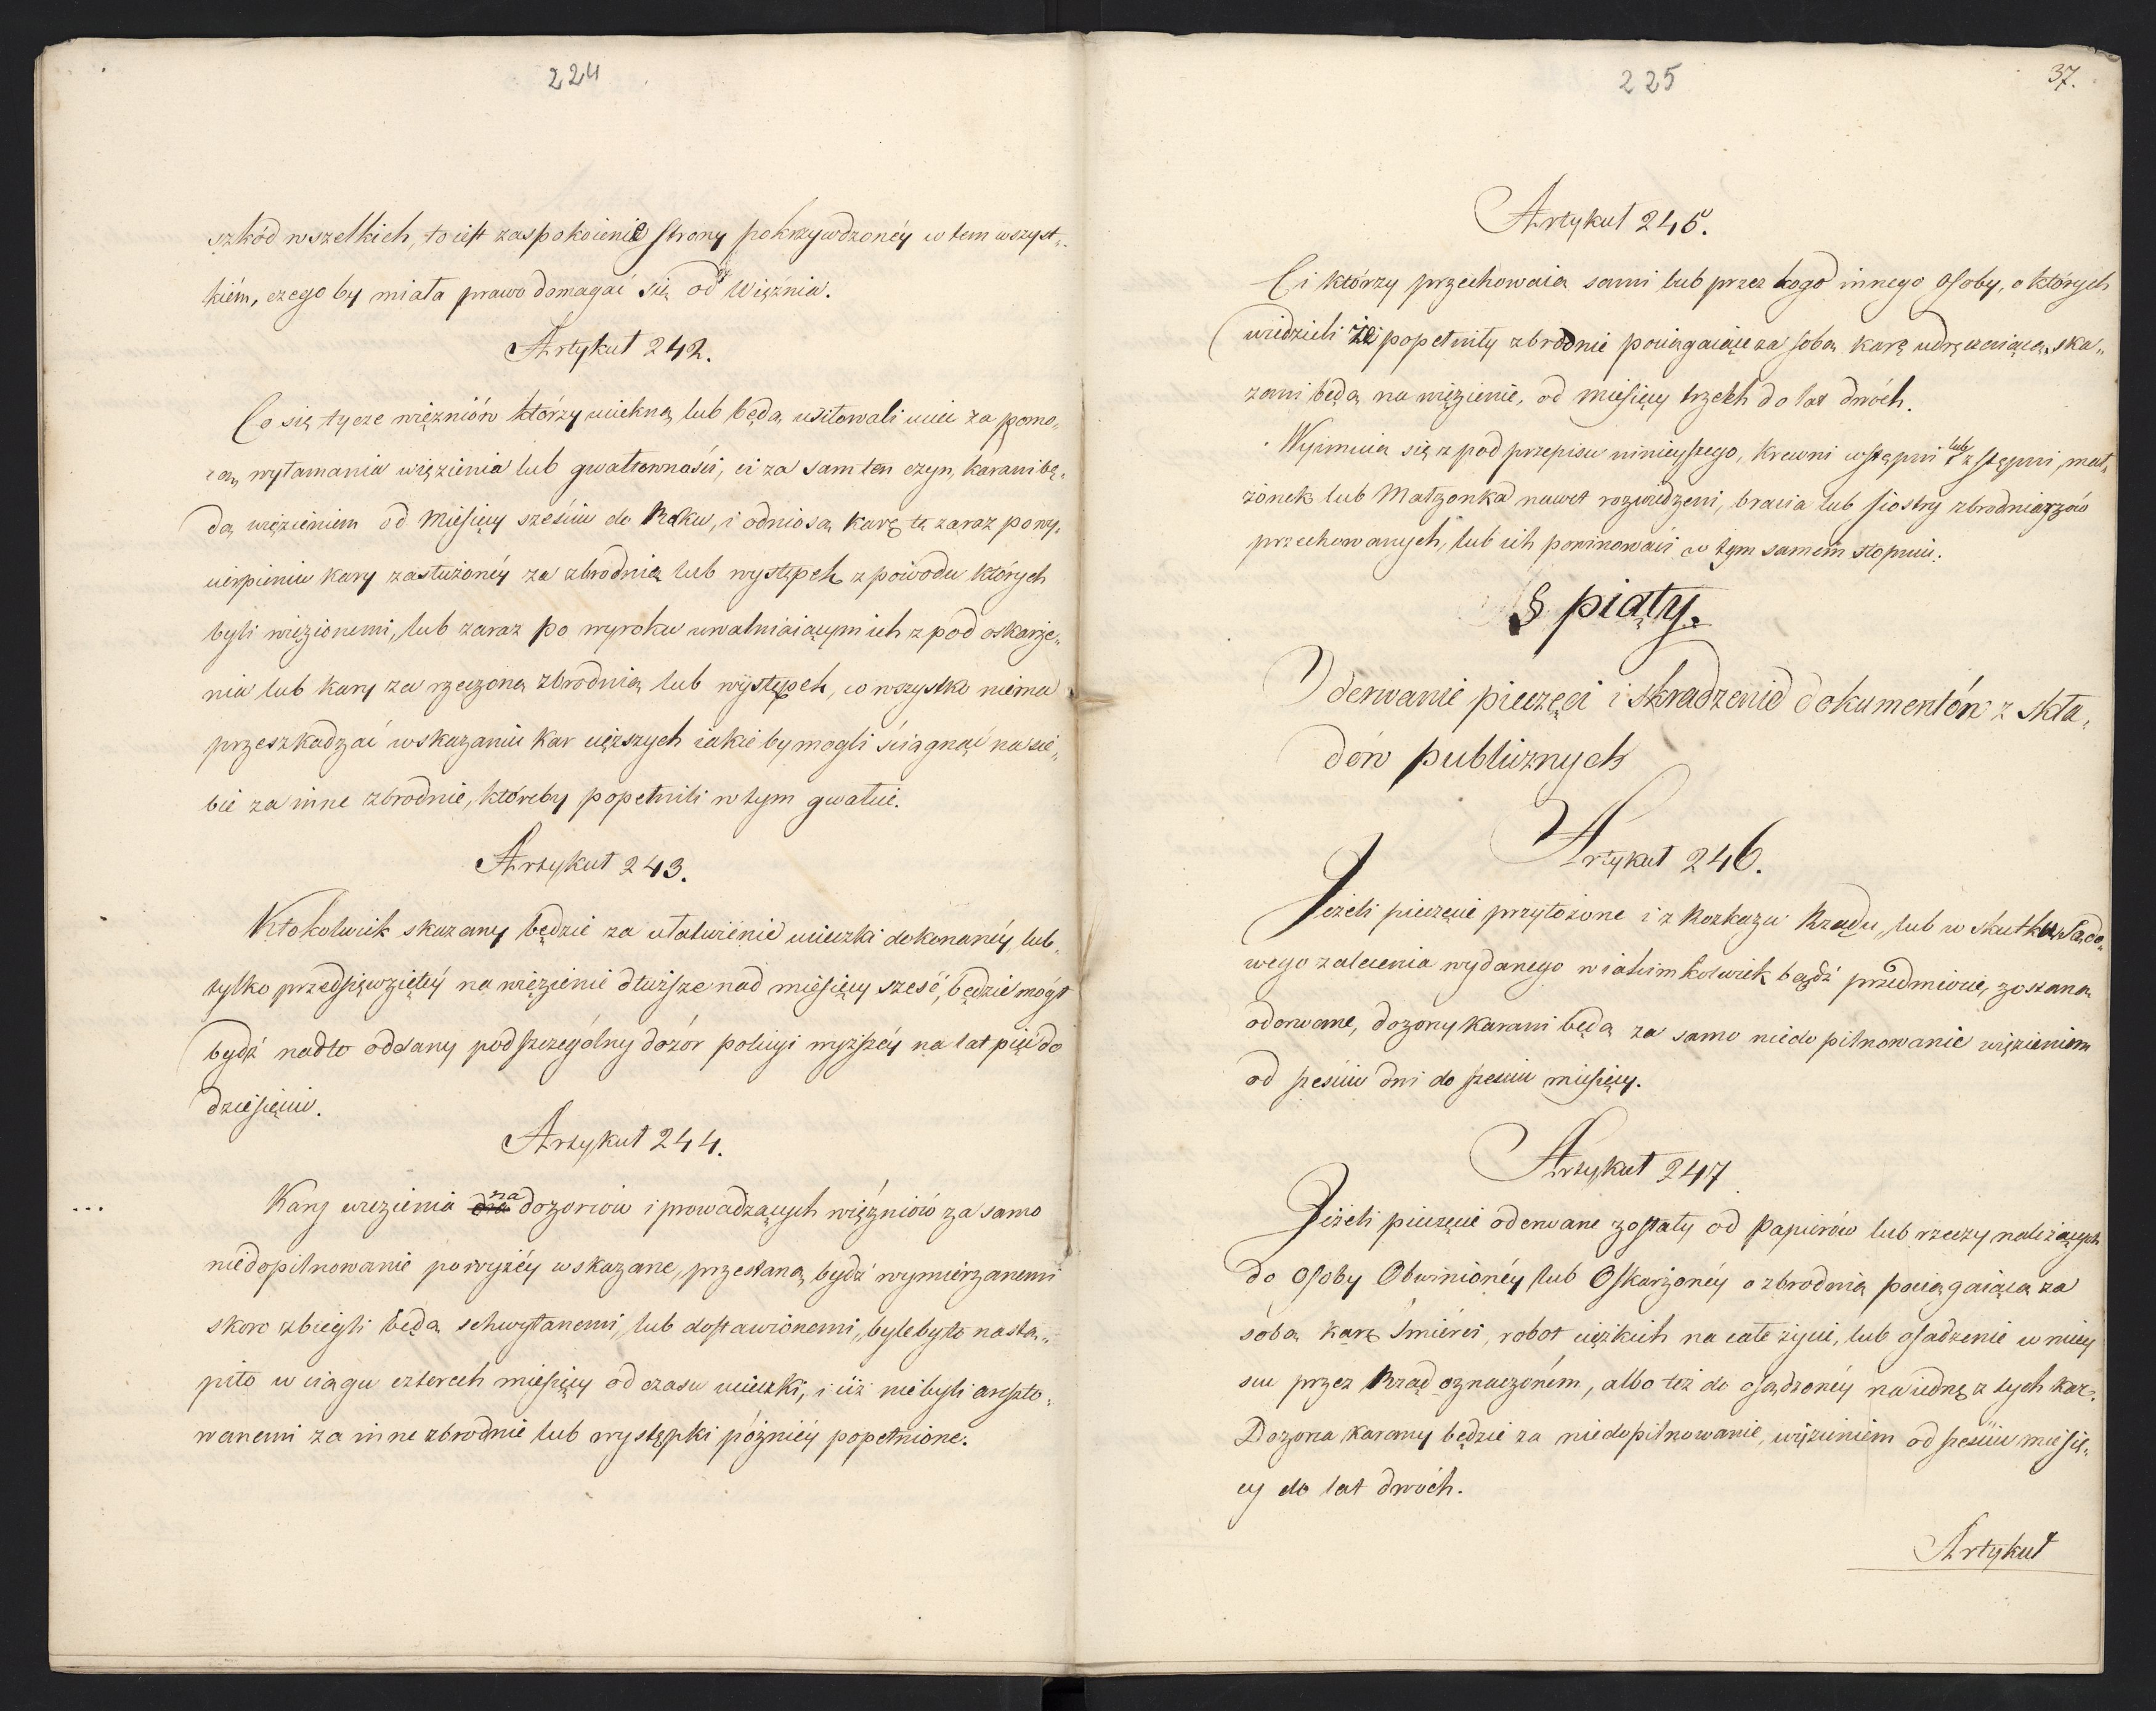 224
szkód wszelkich, to iest zaspokoienie strony pokrzywdzonéy w tem wszyst„
kiém, czego by miała prawo domagać się od Więźnia.
Artykuł 242.
Co się tycze więzniów którzy uciekną lub będą usiłowali uciec za pomo„
cą, wyłamania więzienia lub gwałtowności, ci za sam ten czyn, karani bę„
dą więzieniem od Miesięcy sześciu do Roku, i odniosą karę tę zaraz po wy„
cierpieniu kary zasłużonéy za zbrodnią lub występek z powodu których
byli więzionemi, lub zaraz po wyroku uwalniaiącym ich z pod oskarże„
nia lub kary za rzeczoną zbrodnią lub występek, co wszystko niema
przeszkadzać wskazaniu kar cięższych iakie by mogli ściągnąć na sie„
bie za inne zbrodnie, któreby popełnili w tym gwałcie.
Artykuł 243.
Ktokolwiek skazany będzie za ułatwienie ucieczki dokonanéy lub
tylko przedsięwziętéy na więzienie dłuższe nad miesięcy sześć, będzie mógł
bydź nadto oddany pod szczególny dozór policyi wyższéy na lat pięć do
dziesięciu.
Artykuł 244.
Kary więzienia dla na dozorców i prowadzących więźniów za samo
niedopilnowanie powyżéy wskazane, przestaną bydź wymierzanemi
skoro zbiegli będą schwytanemi, lub dostawionemi, byle by to nastą„
piło w ciągu czterech miesięcy od czasu ucieczki, i iiż niebyli areszto„
wanemi za inne zbrodnie lub występki późniéy popełnione.
225
37.
Artykuł 245.
Ci którzy przechowaią sami lub przez kogo innego Osoby, o których
wiedzieli że popełniły zbrodnie pociągaiące za sobą karę udręczaiącą, ska„
zani będą na więzienie, od miesięcy trzech do lat dwóch.
Wyimuią się z pod przepisu ninieyszego, krewni wstępni lub zstępni, mał„
żonek lub Małżonka nawet rozwiedzeni, bracia lub siostry zbrodniarzów
przechowanych, lub ich powinowaci w tym samém stopniu.
§ piąty.
Oderwanie pieczęci i skradzenie dokumentów z skła„
dów publicznych
Artykuł 246.
Jeżeli pieczęcie przyłożone i z Rozkazu Rządu, lub w skutku Sądo„
wego zalecenia wydanego w iakim kolwiek bądź przedmiocie, zostaną
oderwane, dozorcy karani będą za samo niedopilnowanie więzieniem
od sześciu dni do sześciu miesięcy.
Artykuł 247
Jeżeli pieczęcie oderwane zostały od papierów lub rzeczy należących
do Osoby Obwinionéy lub Oskarżonéy o zbrodnią pociągaiącą za
sobą karę Śmierci, robot ciężkich na całe życie, lub osadzenie w miey
scu przez Rząd oznaczoném, albo też do osądzonéy na iednę z tych kar„
Dozorca karany będzie za niedopilnowanie, więzieniem od sześciu miesię„
cy do lat dwóch.
Artykuł